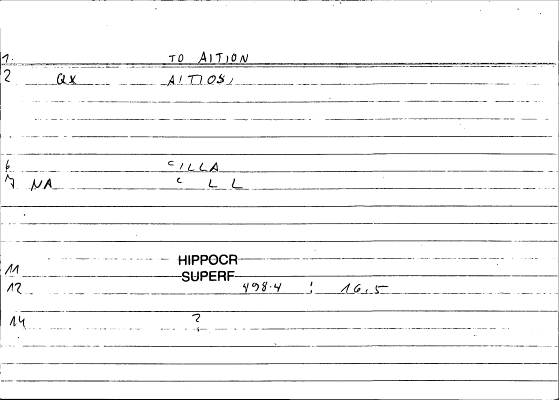 1. TO AITION
2 QX AITIOS,
6 CILLA
7 NA C L L
HIPPOCR
11
SUPERF
12 498.4 : 16.5
14 ?